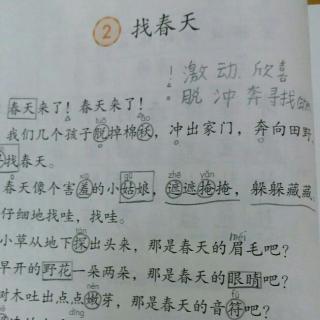 2 找春天
! 激动 欣喜
! 脱 冲 奔 寻找
春天来了!春天来了!
我们几个孩子,脱掉棉袄,冲出家门,奔向田野,
找春天。
春天像个害羞的小姑娘,遮遮掩掩,躲躲藏藏。
仔细地找哇,找哇。
小草从地下探出头来,那是春天的眉毛吧?
早开的野花一朵两朵,那是春天的眼睛吧?
树木吐出点点嫩芽,那是春天的音符吧?